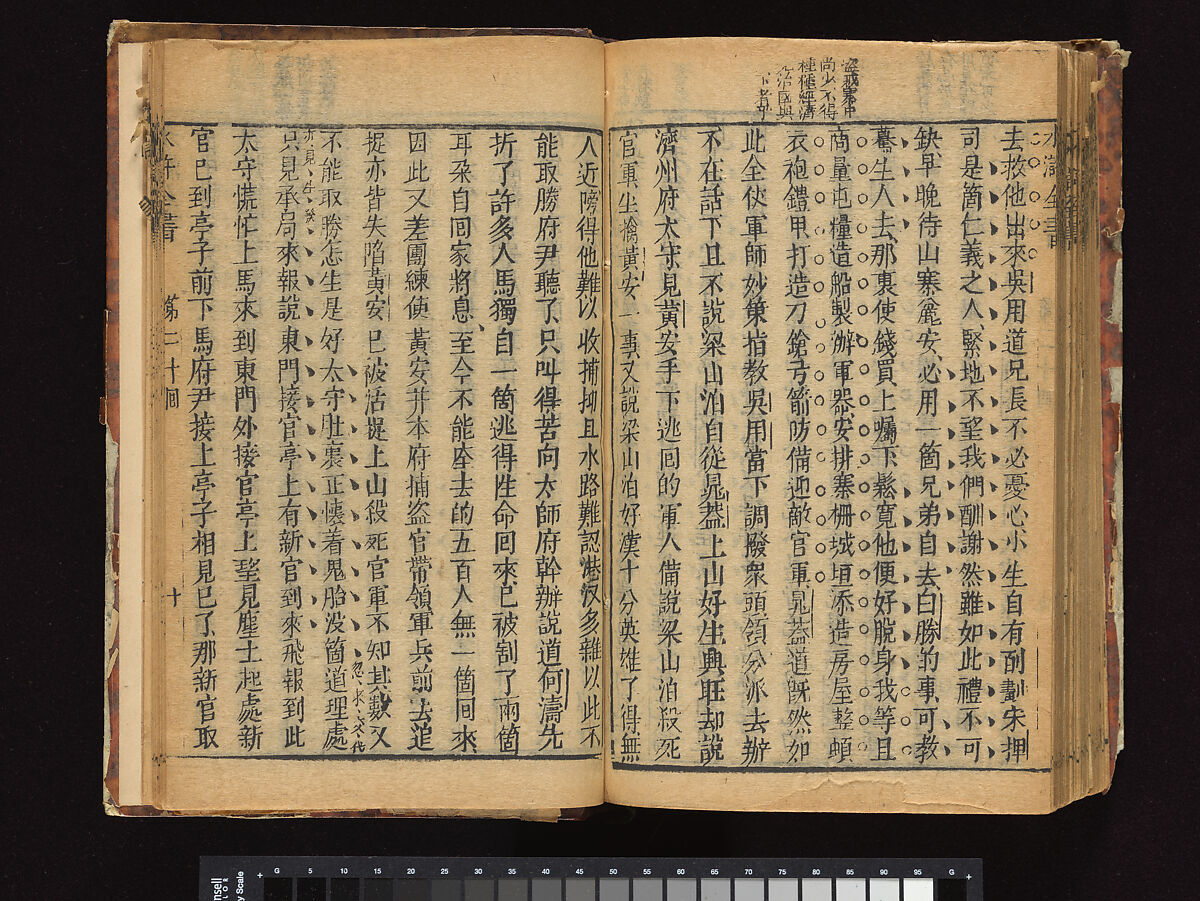 盜賊寨中
尚少不得
種種經濟
治國興
去救他出來吳用道兄長不必憂心小生自有刮劃宋押
司是箇仁義之人緊地不望我們酬謝然雖如此禮不可
缺早晚待山寨麄安必用一箇兄弟自去白勝的事可教
驀生人去那裏使錢買上囑下鬆寬他便好脫身我等且
商量屯糧造船製辦軍器安排寨柵城垣添造房屋整頓
衣袍鎧甲打造刀鎗弓箭防備迎敵官軍晁葢道旣然如
此全伏軍師妙策指教吳用當下調撥衆頭領分派去辦
不在話下且不說梁山泊自從晁葢上山好生興旺却說
濟州府太守見黃安手下逃回的軍人備說梁山泊殺死
官軍生擒黃安一事又說梁山泊好漢十分英雄了得無
人近傍得他難以收捕抑且水路難認港汊多雜以此不
能取勝府尹聽了只叫得苦向太師府幹辦說道何濤先
折了許多人馬獨自一箇逃得性命回來已被割了兩箇
耳朶自回家將息至今不能痊去的五百人無一箇回來
因此又差團練使黃安幷本府捕盜官帶領軍兵前去追
捉亦皆失陷黃安已被活捉上山殺死官軍不知其數又
不能取勝怎生是好太守肚裏正懷着鬼胎没箇道理處
只見承局來報說東門接官亭上有新官到來飛報到此
太守慌忙上馬來到東門外接官亭上望見塵土起處新
官已到亭子前下馬府尹接上亭子相見已了那新官取
水滸全書
第二十囘
十